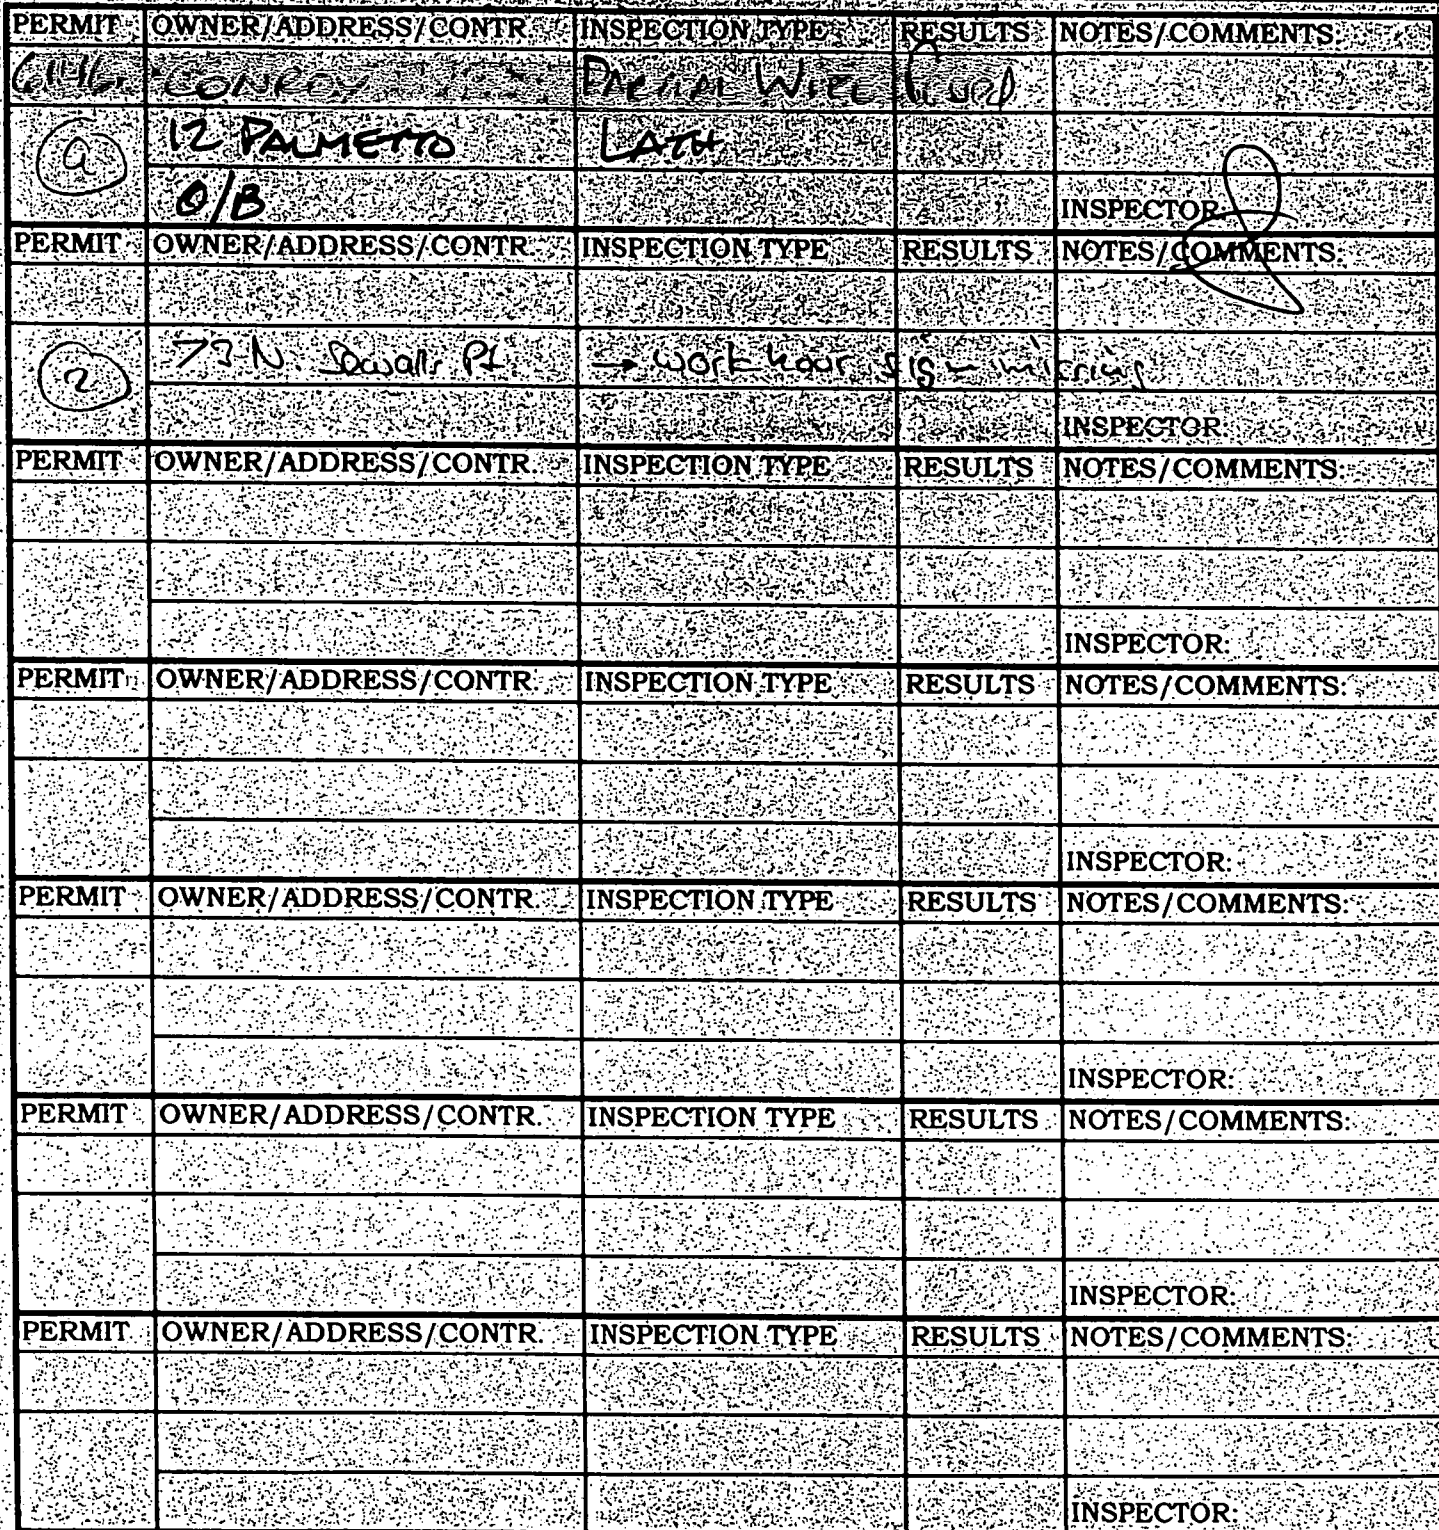 PERMIT OWNER/ADDRESS/CONTR. INSPECTION TYPE RESULTS NOTES/COMMENTS:
6146 CONROY PARTIAL WIRE
9 12 PALMETTO LATH
O/B INSPECTOR:
PERMIT OWNER/ADDRESS/CONTR. INSPECTION TYPE RESULTS NOTES/COMMENTS:
2 73 N. Sewalls Pt. → work hour sign missing
INSPECTOR:
PERMIT OWNER/ADDRESS/CONTR. INSPECTION TYPE RESULTS NOTES/COMMENTS:
INSPECTOR:
PERMIT OWNER/ADDRESS/CONTR. INSPECTION TYPE RESULTS NOTES/COMMENTS:
INSPECTOR:
PERMIT OWNER/ADDRESS/CONTR. INSPECTION TYPE RESULTS NOTES/COMMENTS:
INSPECTOR:
PERMIT OWNER/ADDRESS/CONTR. INSPECTION TYPE RESULTS NOTES/COMMENTS:
INSPECTOR:
PERMIT OWNER/ADDRESS/CONTR. INSPECTION TYPE RESULTS NOTES/COMMENTS:
INSPECTOR: